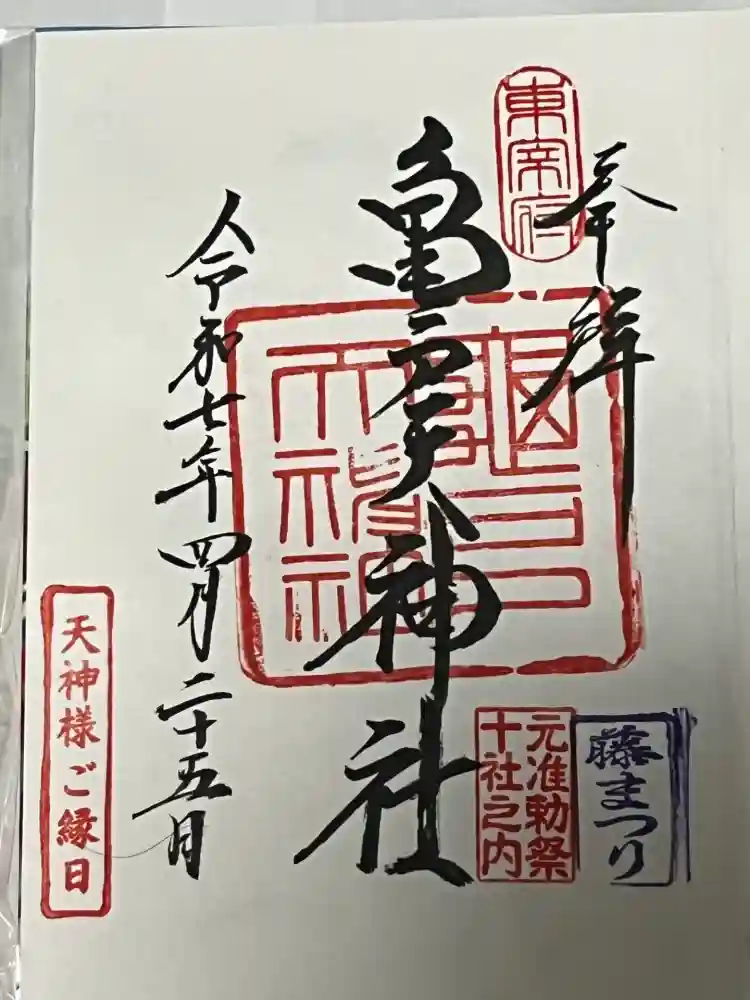 東宰府
奉拝
亀戸天神社
令和七年四月二十五日
藤まつり
元准勅祭
十社之内
天神様ご縁日